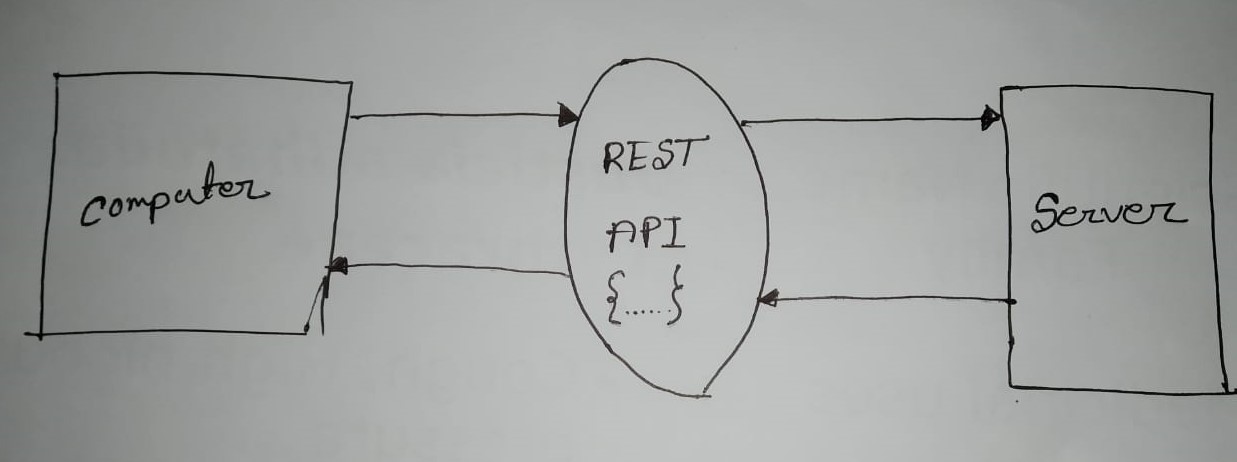 Computer
REST
API
{......}
Server